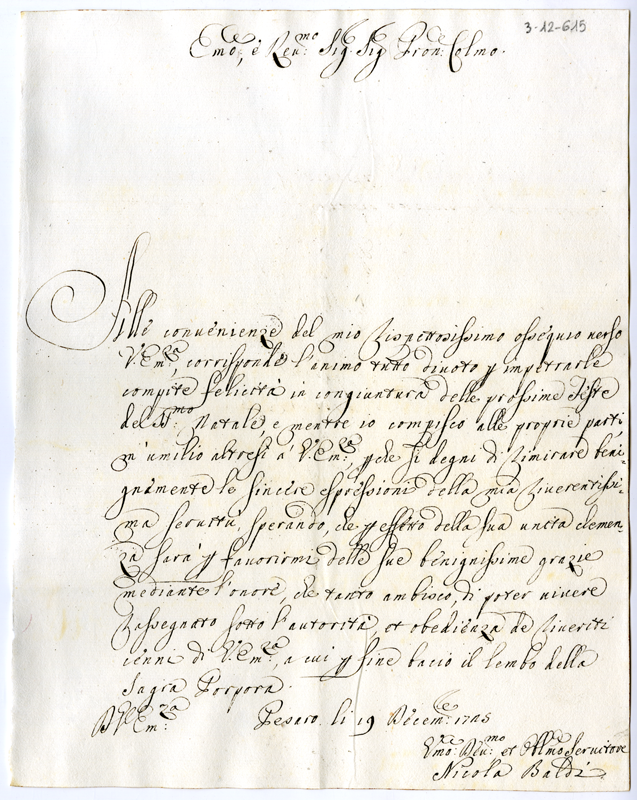 3-12-615
Emo, e Reu: mo Sig. Sig Pron: Colmo.
Alle conuenienze del mio Rispettosissimo ossequio uerso
V. Em:za, corrisponde l'animo tutto diuoto p impetrarle
compite felicità in congiuntura delle prossime feste
del S:mo Natale, e mentre io compisco alle proprie parti,
m'umilio altresi à V. Em:, pche si degni di Rimirare beni-
gnamente le sincere espressioni della mia Riuerentissi-
ma seruitù, sperando, che p effetto della sua uncta clemen-
za sarà p fauorirmi delle sue benignissime grazie
mediante l'onore, che tanto ambisco, di poter uiuere
Rassegnato sotto l'autorità, et obedienza de Riueriti
cenni di V. Em:za, a cui p fine bacio il lembo della
Sagra Porpora.
D V. Em:za Pesaro li 19 Decem: 1725
Emo: Reu:mo et Obblmo Seruitore
Nicola Baldi